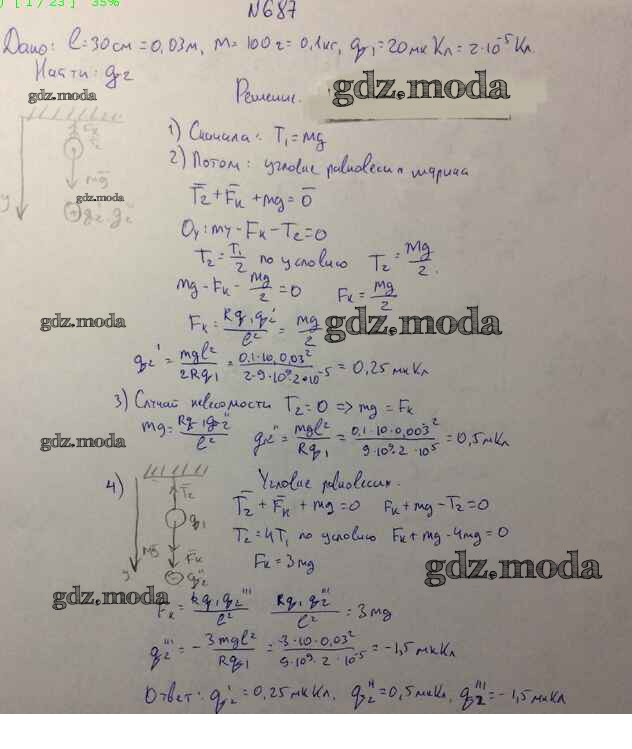 ) [ 1 / 23 ] 35%
№687
Дано: l=30см=0,03м, m=100г=0,1кг, q₁=20мкКл=2·10⁻⁵Кл.
Найти: q₂
gdz.moda
Решение.
gdz.moda
1) Сначала: T₁=mg
2) Потом: условие равновесия шарика
gdz.moda
T̄₂+F̄к+mḡ=0̄
Oy: mg-Fк-T₂=0
T₂=T₁/2 по условию T₂=mg/2.
mg-Fк-mg/2=0 Fк=mg/2
gdz.moda
Fк=kq₁q₂'/l²=mg/2
gdz.moda
q₂'=mgl²/2kq₁=0,1·10·0,03²/2·9·10⁹·2·10⁻⁵=0,25мкКл
3) Случай невесомости T₂=0 => mg=Fк
gdz.moda
mg=kq₁q₂''/l² q₂''=mgl²/kq₁=0,1·10·0,003²/9·10⁹·2·10⁵=0,5мкКл
4) Условие равновесия.
T̄₂
T̄₂+F̄к+mḡ=0 Fк+mg-T₂=0
q₁
T₂=4T₁ по условию Fк+mg-4mg=0
mḡ F̄к
Fк=3mg
gdz.moda
y q₂'''
gdz.moda
Fк=kq₁q₂'''/l² kq₁q₂'''/l²=3mg
q₂'''=-3mgl²/kq₁=-3·10·0,03²/9·10⁹·2·10⁻⁵=-1,5мкКл
Ответ: q₂'=0,25мкКл, q₂''=0,5мкКл, q₂'''=-1,5мкКл